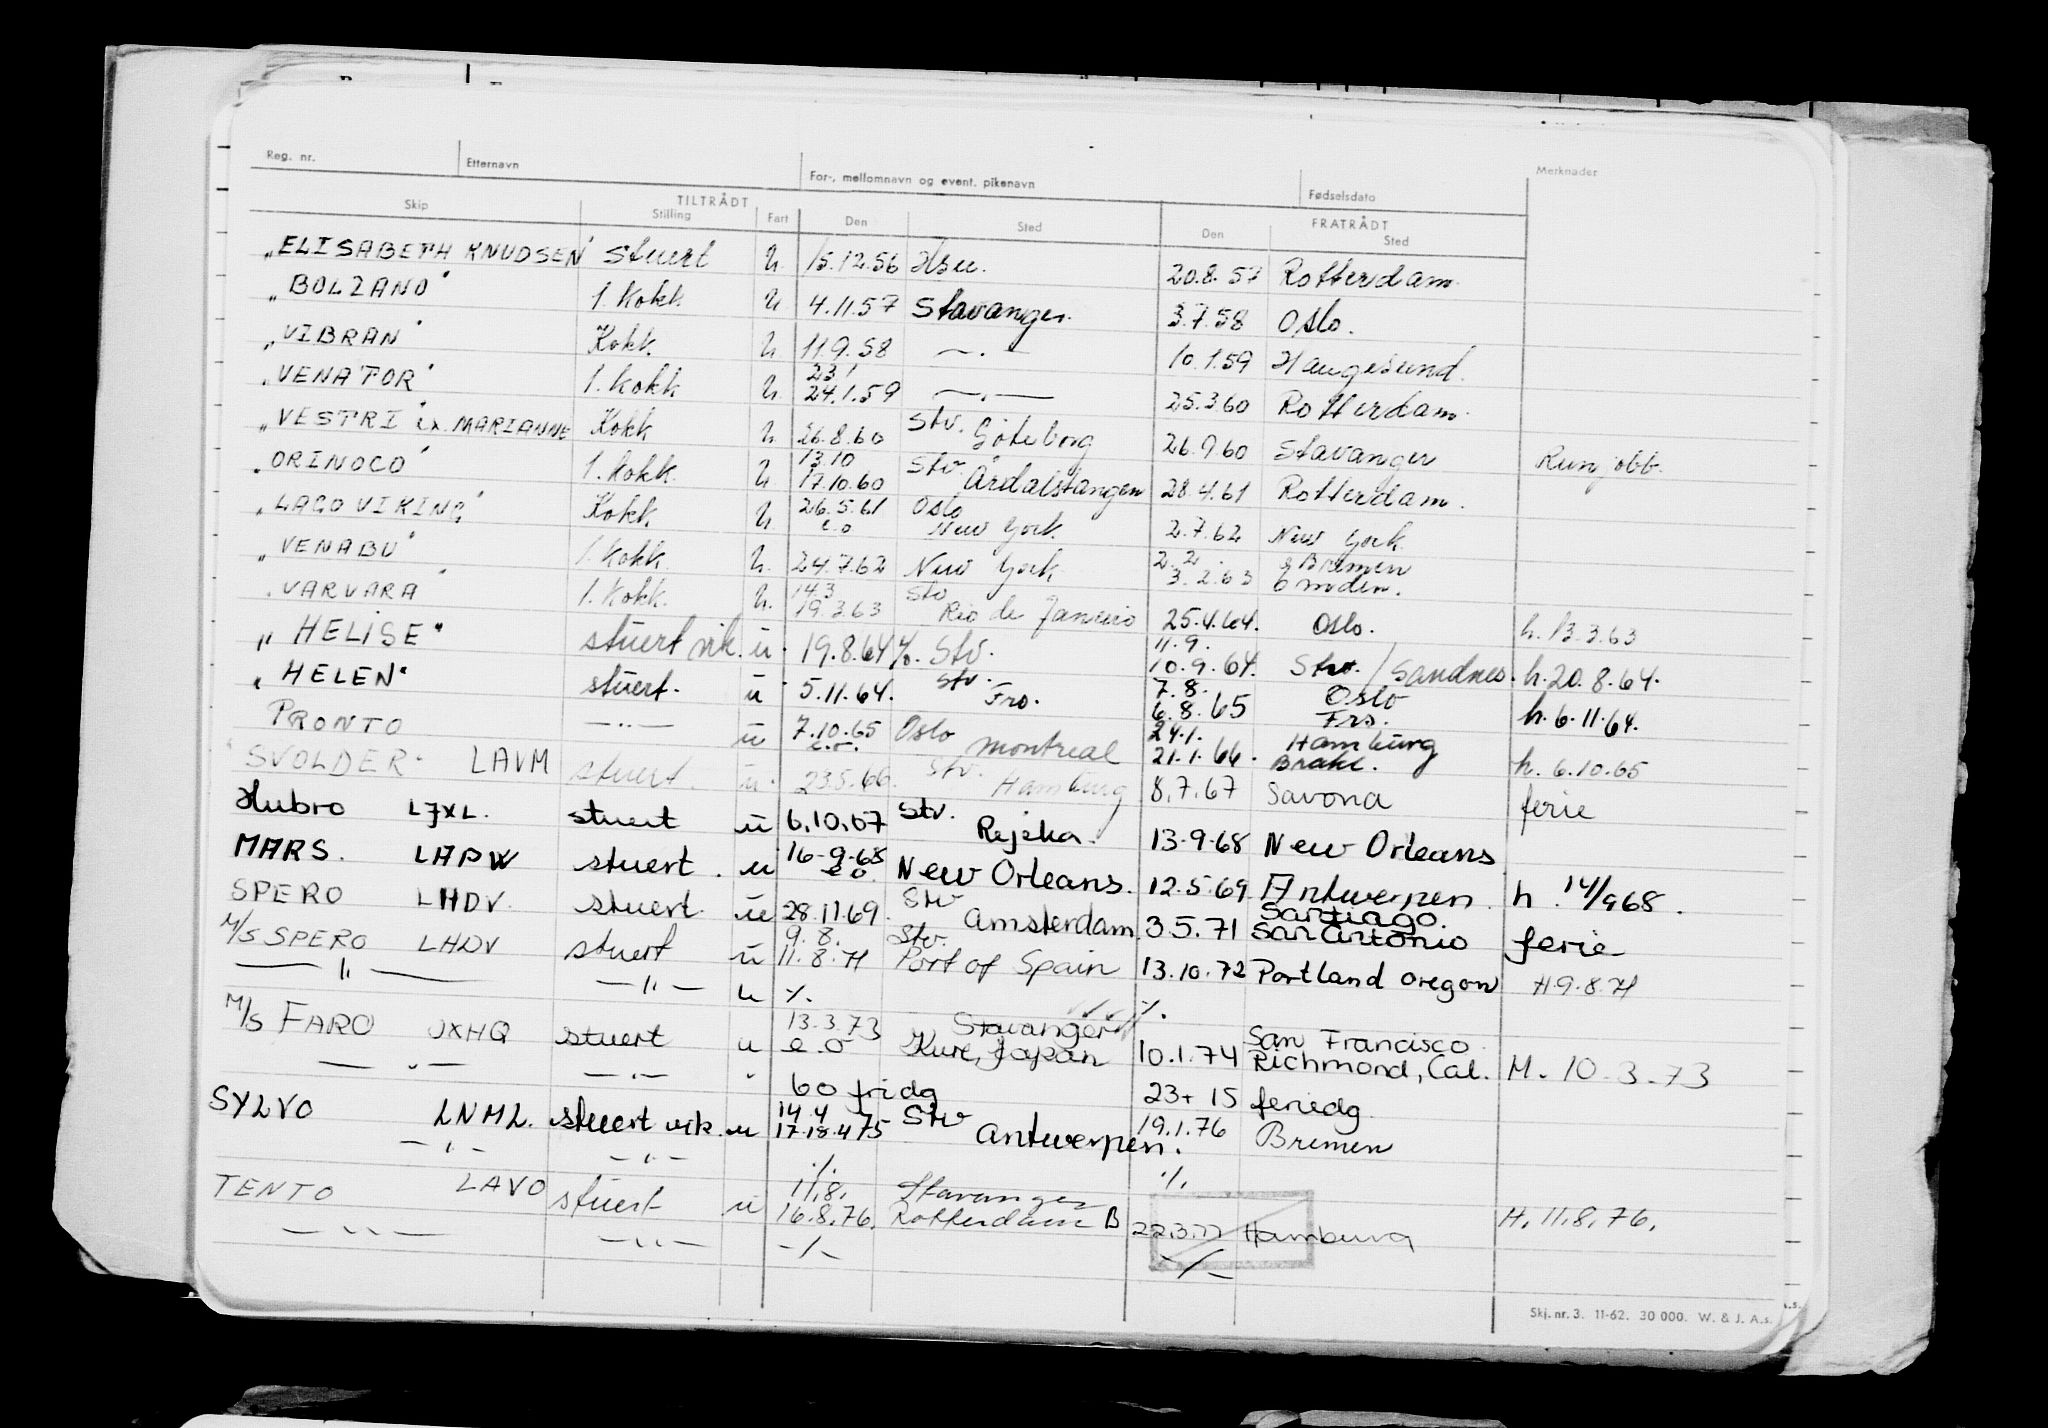 Reg. nr. Etternavn For-, mellomnavn og event. pikenavn Fødselsdato Merknader
TILTRÅDT FRATRÅDT
Skip Stilling Fart Den Sted Den Sted
„ELISABETH KNUDSEN" Stuert u. 15.12.56 Hsu. 20.8.57 Rotterdam.
„BOLZANO" 1. Kokk u 4.11.57 Stavanger. 3.7.58 Oslo.
„VIBRAN" Kokk. u 11.9.58 —.— 10.1.59 Haugesund.
23/
„VENATOR" 1. kokk u. 24.1.59 —.— 25.3.60 Rotterdam.
„VESTRI" ex. MARIANNE Kokk u. 26.8.60 Stv. Göteborg 26.9.60 Stavanger Run jobb.
13.10 Stv.
„ORINOCO" 1. kokk. u. 17.10.60 Årdalstangen 28.4.61 Rotterdam.
26.5.61 Oslo
„LAGO VIKING" Kokk u e.o New York. 2.7.62 New York.
2.2. Bremen
„VENABU" 1. kokk. u. 24.7.62 New York 3.2.63 Emden.
14.3 Stv
„VARVARA" 1. Kokk. u. 19.3.63 Rio de Janeiro 25.4.64. Oslo. h. 13.3.63
11.9.
„HELISE" stuert vik. u. 19.8.64 Stv. 10.9.64. Stv. / Sandnes. h. 20.8.64.
Stv. 7.8. Oslo
„HELEN" stuert. u 5.11.64. Fro. 6.8.65 Frs. h. 6.11.64.
7.10.65 Oslo 24.1. Hamburg
PRONTO —„— u e.o. Montreal 21.1.66. Brake. h. 6.10.65
Stv.
"SVOLDER" LAVM stuert. u. 23.5.66. Hamburg 8.7.67 Savona ferie
Stv.
Hubro LJXL. stuert u 6.10.67 Rejeka. 13-9-68 New Orleans
16-9-68
MARS. LAPW stuert. u e.o. New Orleans. 12.5.69 Antwerpen. h. 14/968.
Stv Santiago.
SPERO LHDV. stuert. u 28.11.69. Amsterdam. 3.5.71 San Antonio ferie
9.8. Stv.
M/S SPERO LHDV stuert u 11.8.71 Port of Spain 13.10.72 Portland Oregon H 9.8.71
—„— —„— u ./. ./.
13.3.73 Stavanger San Francisco
M/S FARO JXHQ stuert u e.o Kure, Japan 10.1.74 Richmond, Cal. M. 10.3.73
—.— —.— " 60 fridg 23+ 15 feriedg.
14.4 Stv
SYLVO LNML. stuert vik. u 17.18.475 Antwerpen. 19.1.76 Bremen
—„— —„— ./. ./.
11.8. Stavanger
TENTO LAVO stuert u 16.8.76. Rotterdam B 22.3.77 Hamburg H. 11.8.76.
—„— —„— -/- -/-
Skj. nr. 3. 11-62. 30 000. W. & J. A.s.